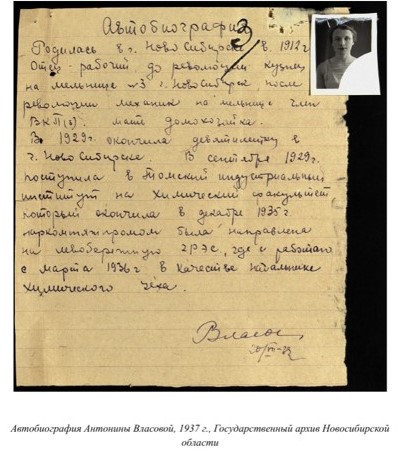 Автобиография
3
Родилась в г. Новосибирске в 1912 г
Отец рабочий до революции кузнец
на мельнице №3 г. Новосибирск после
революции механик на мельнице член
ВКП(б). мать домохозяйка.
В 1929 г. окончила девятилетку в
г. Новосибирске. В сентябре 1929 г.
поступила в Томский индустриальный
институт на химический факультет
который окончила в декабре 1935 г.
наркомтяжпромом была направлена
на левобережную ГРЭС, где и работаю
с марта 1936 г в качестве начальника
химического цеха.
Власова
Автобиография Антонины Власовой, 1937 г., Государственный архив Новосибирской
области